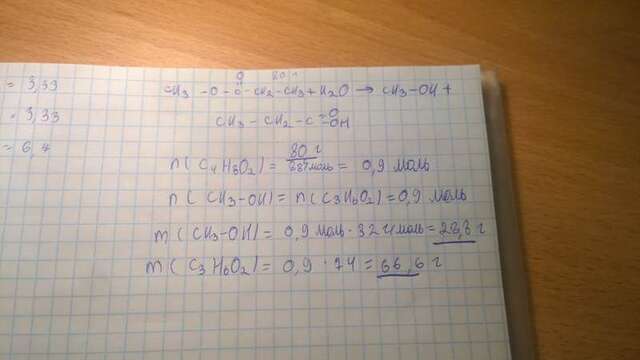 = 3,33
= 3,33
= 6,4
O 80 г
CH₃ - O - C - CH₂ - CH₃ + H₂O → CH₃ - OH +
CH₃ - CH₂ - C =O OH
n ( C₄H₈O₂) = 80 г / 88 г/моль = 0,9 моль
n ( CH₃-OH) = n (C₃H₆O₂) = 0,9 моль
m ( CH₃-OH) = 0,9 моль · 32 г/моль = 28,8 г
m ( C₃H₆O₂) = 0,9 · 74 = 66,6 г